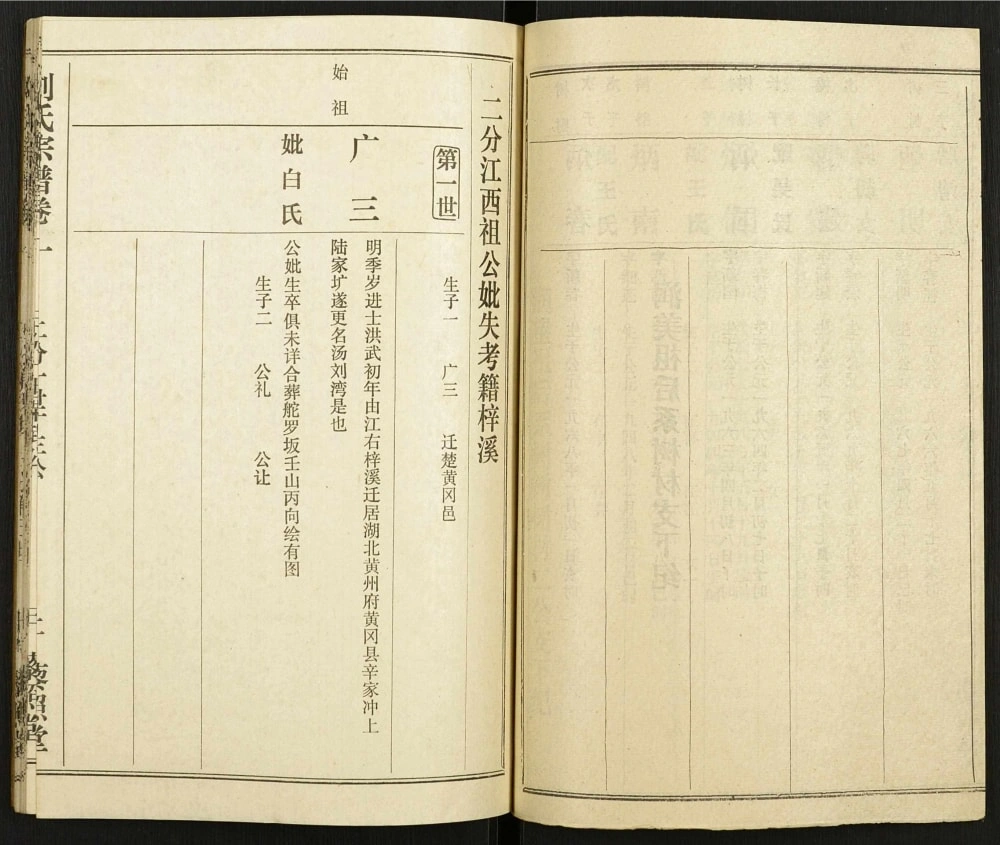 二分江西祖公妣失考籍梓溪
第一世
生子一 广三 迁楚黄冈邑
始祖
广三
明季岁进士洪武初年由江右梓溪迁居湖北黄州府黄冈县辛家冲上
陆家圹遂更名汤刘湾是也
妣白氏
公妣生卒俱未详合葬舵罗坂壬山丙向绘有图
生子二 公礼 公让
刘氏宗谱卷一